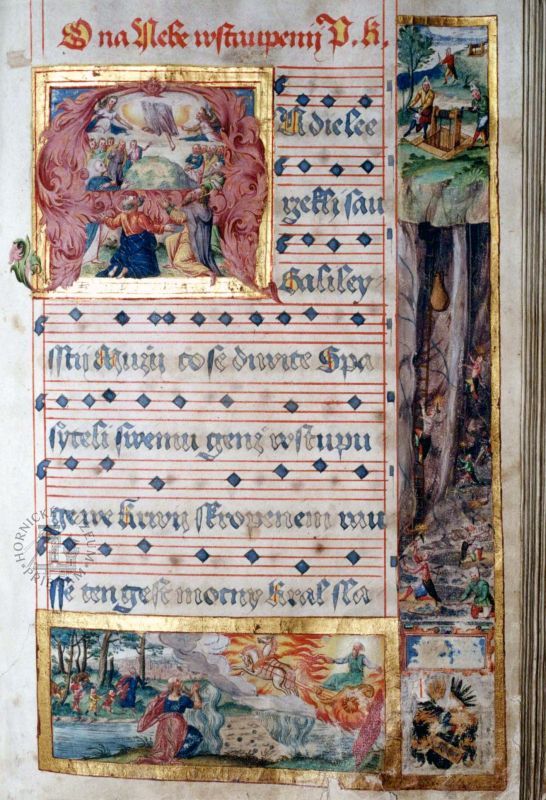 O na Nebe wstaupenij P. K.
Andielee
rzekli sau
Galiley
sstij Muzij co se diwite Spa
syteli swemu genz wstupu
ge we krwij skropenem rau
sse ten gest mocny Kral sla
HORNICKÉ MUZEUM